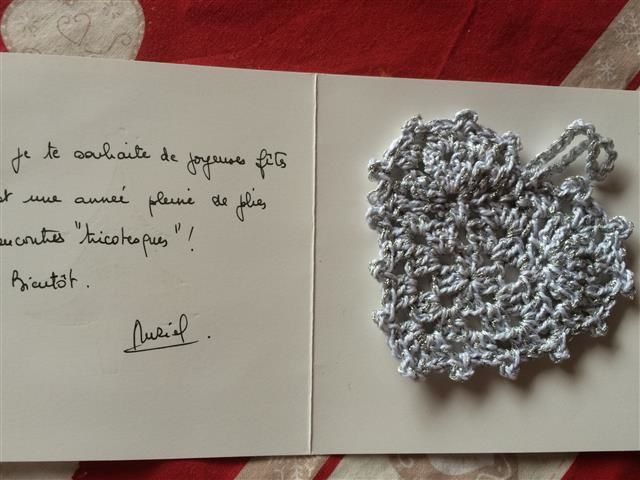 je te souhaite de joyeuses fêtes
et une année pleine de jolies
rencontres "tricotesques" !
Bientôt.
Muriel.